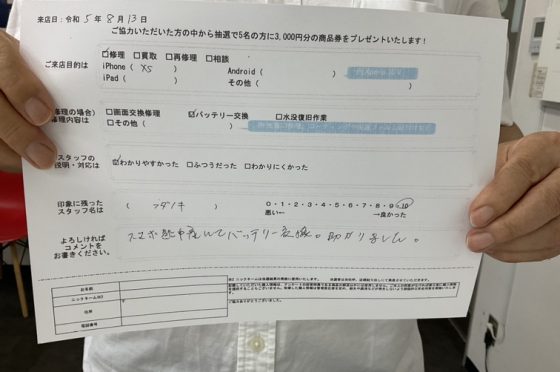 来店日：令和 5年 8月 13日
ご協力いただいた方の中から抽選で5名の方に3,000円分の商品券をプレゼントいたします！
ご来店目的は
☑修理 □買取 □再修理 □相談
iPhone ( XS ) Android ( )
iPad ( ) その他 ( )
(修理の場合)
修理内容は
□画面交換修理 ☑バッテリー交換 □水没復旧作業
□その他 ( )
スタッフの
説明・対応は
☑わかりやすかった □ふつうだった □わかりにくかった
印象に残った
スタッフ名は
0・1・2・3・4・5・6・7・8・9・10
悪い← →良かった
よろしければ
コメントを
お書きください。
バッテリー交換。助かりました。
お名前
ニックネーム※2
住所
電話番号
ご協力ありがとうございました。